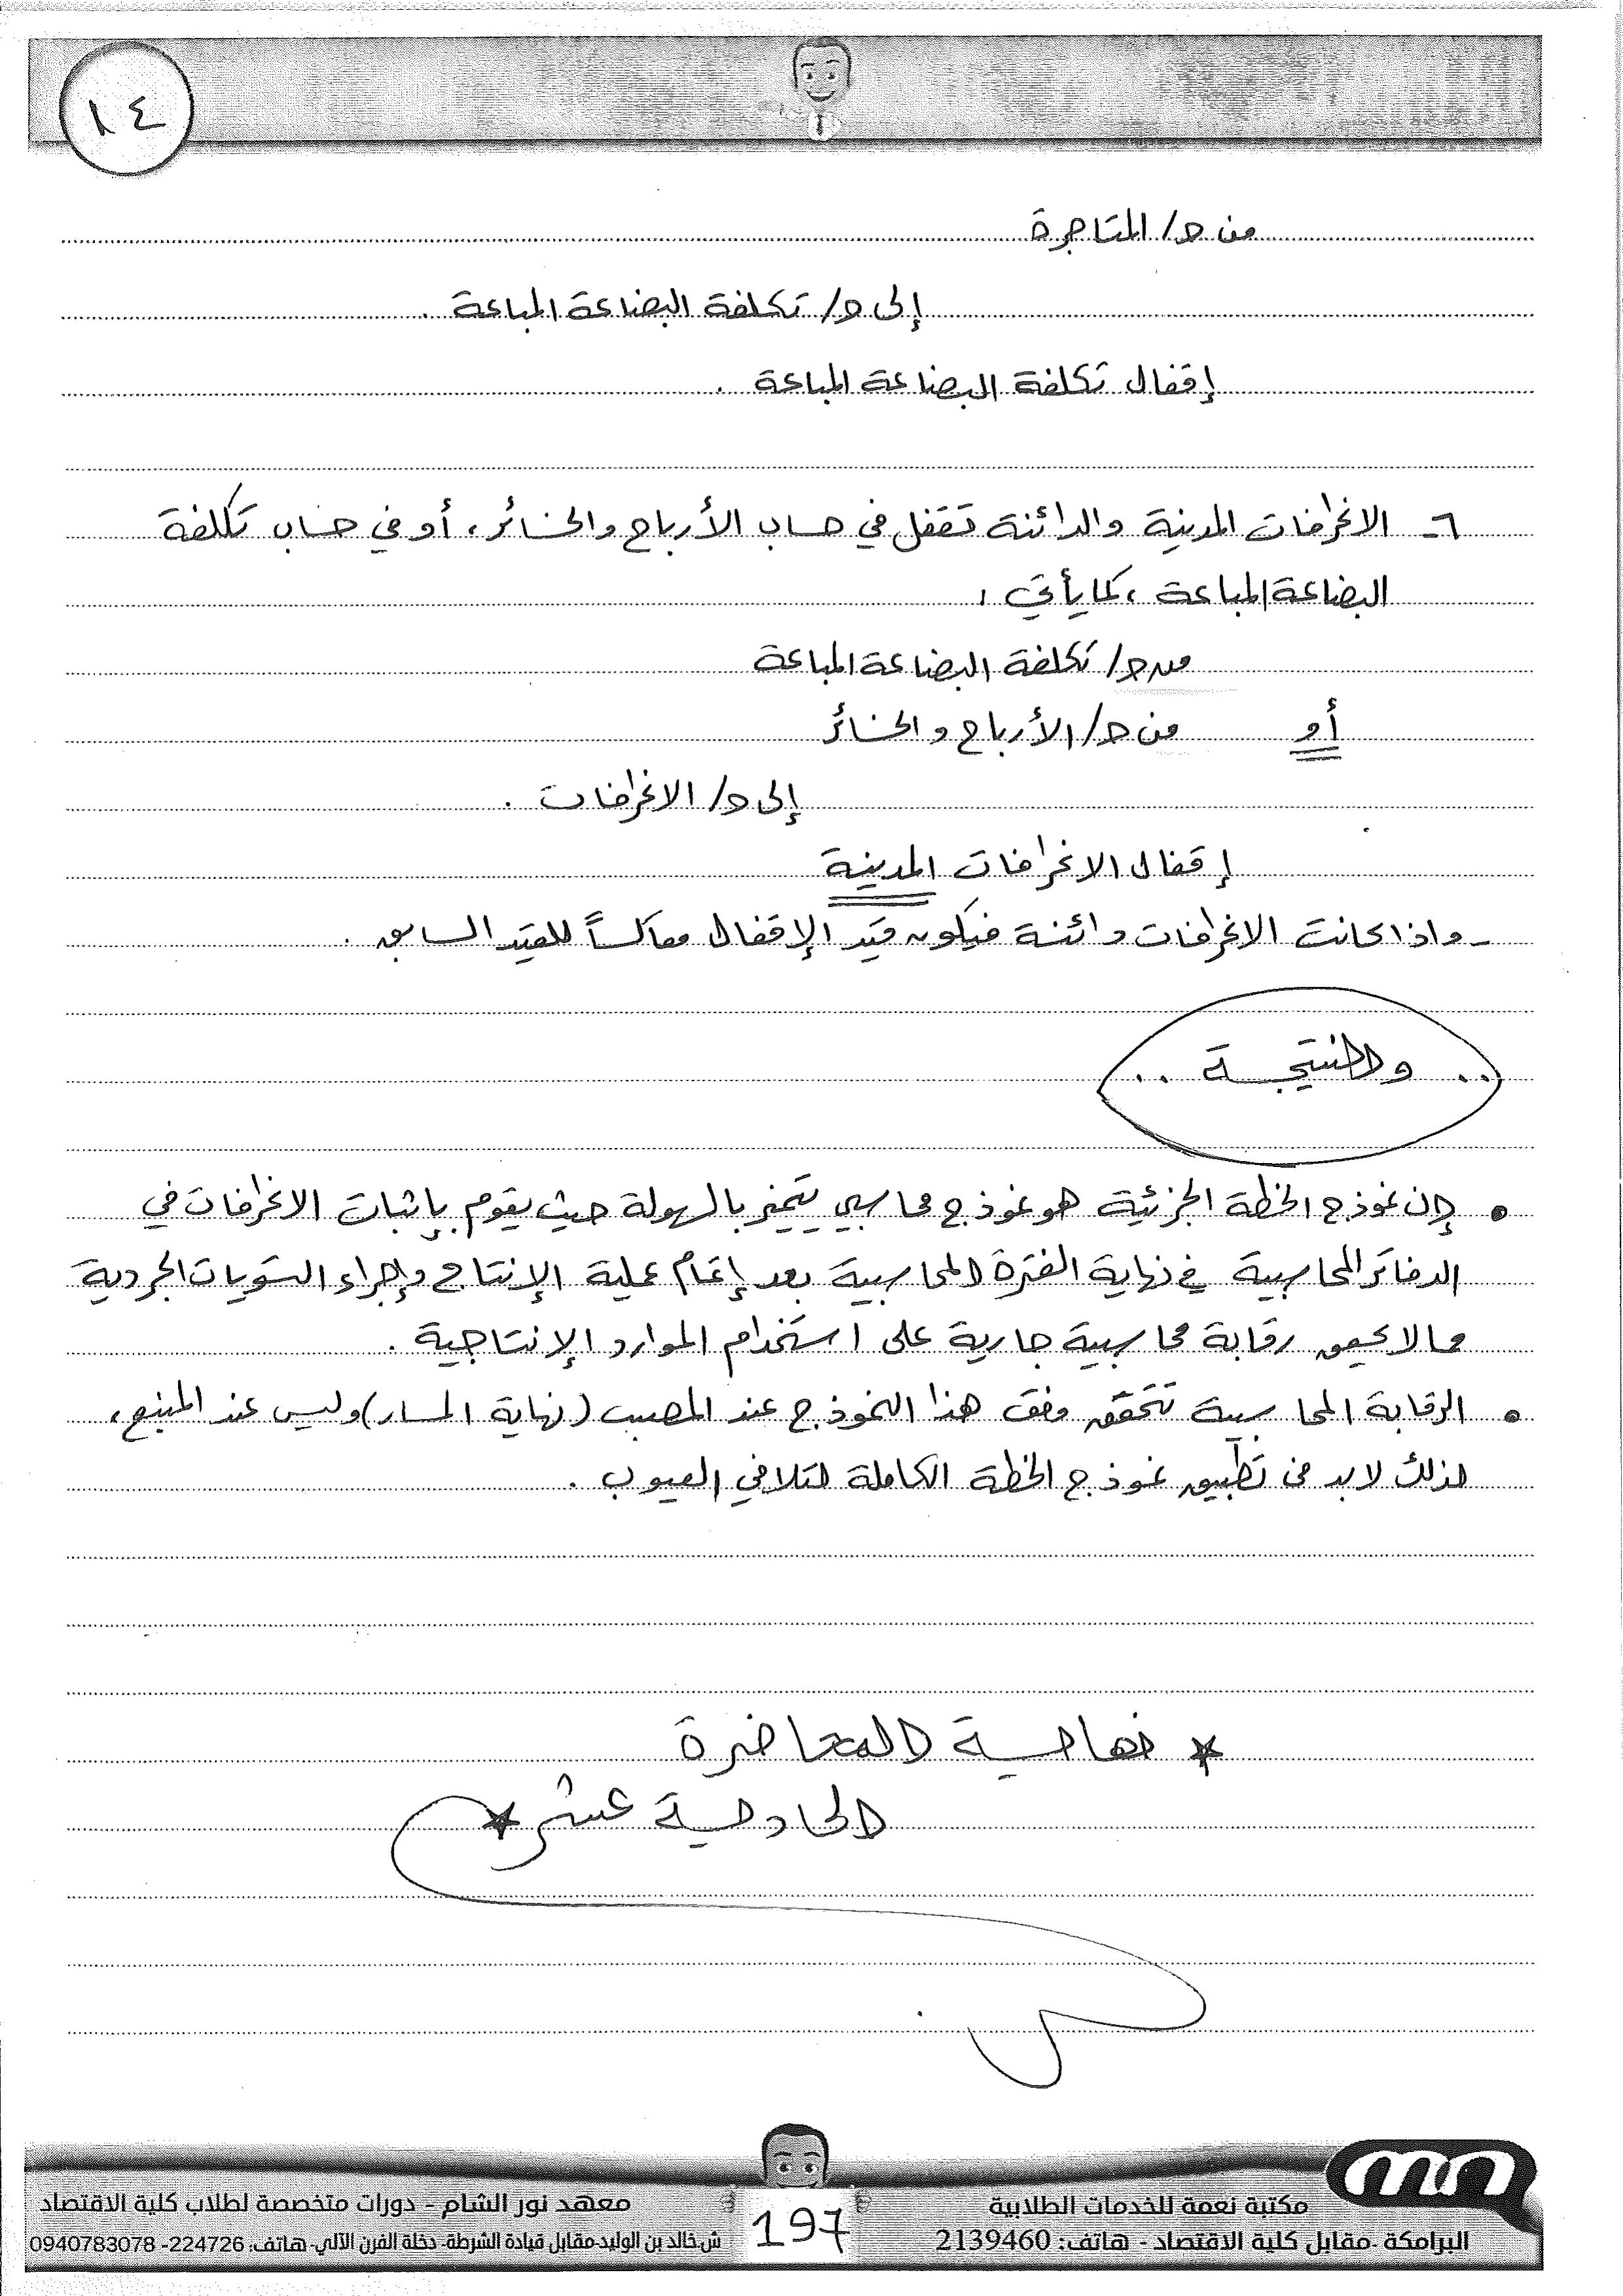 ١٤
من ح/ المتاجرة
إلى ح/ تكلفة البضاعة المباعة .
إقفال تكلفة البضاعة المباعة .
٦- الانحرافات المدينة والدائنة تقفل في حساب الأرباح والخسائر ، أو في حساب تكلفة
البضاعة المباعة ، كما يأتي :
من ح/ تكلفة البضاعة المباعة
أو من ح/ الأرباح والخسائر
إلى ح/ الانحرافات .
إقفال الانحرافات المدينة
- واذا كانت الانحرافات دائنة فيكون قيد الإقفال معاكساً للقيد السابق .
.. والنتيجة ..
• إن نموذج الخطة الجزئية هو نموذج محاسبي يتميز بالسهولة حيث يقوم بإثبات الانحرافات في
الدفاتر المحاسبية في نهاية الفترة المحاسبية بعد إتمام عملية الإنتاج وإجراء التسويات الجردية
مما لا يحقق رقابة محاسبية جارية على استخدام الموارد الإنتاجية .
• الرقابة المحاسبية تتحقق وفق هذا النموذج عند المصب (نهاية المسار) وليس عند المنبع ،
لذلك لا بد من تطبيق نموذج الخطة الكاملة لتلافي العيوب .
* نهاية المحاضرة
الحادية عشر *
مكتبة نعمة للخدمات الطلابية
البرامكة -مقابل كلية الاقتصاد - هاتف: 2139460
197
معهد نور الشام - دورات متخصصة لطلاب كلية الاقتصاد
ش.خالد بن الوليد-مقابل قيادة الشرطة- دخلة الفرن الآلي- هاتف: 224726- 0940783078